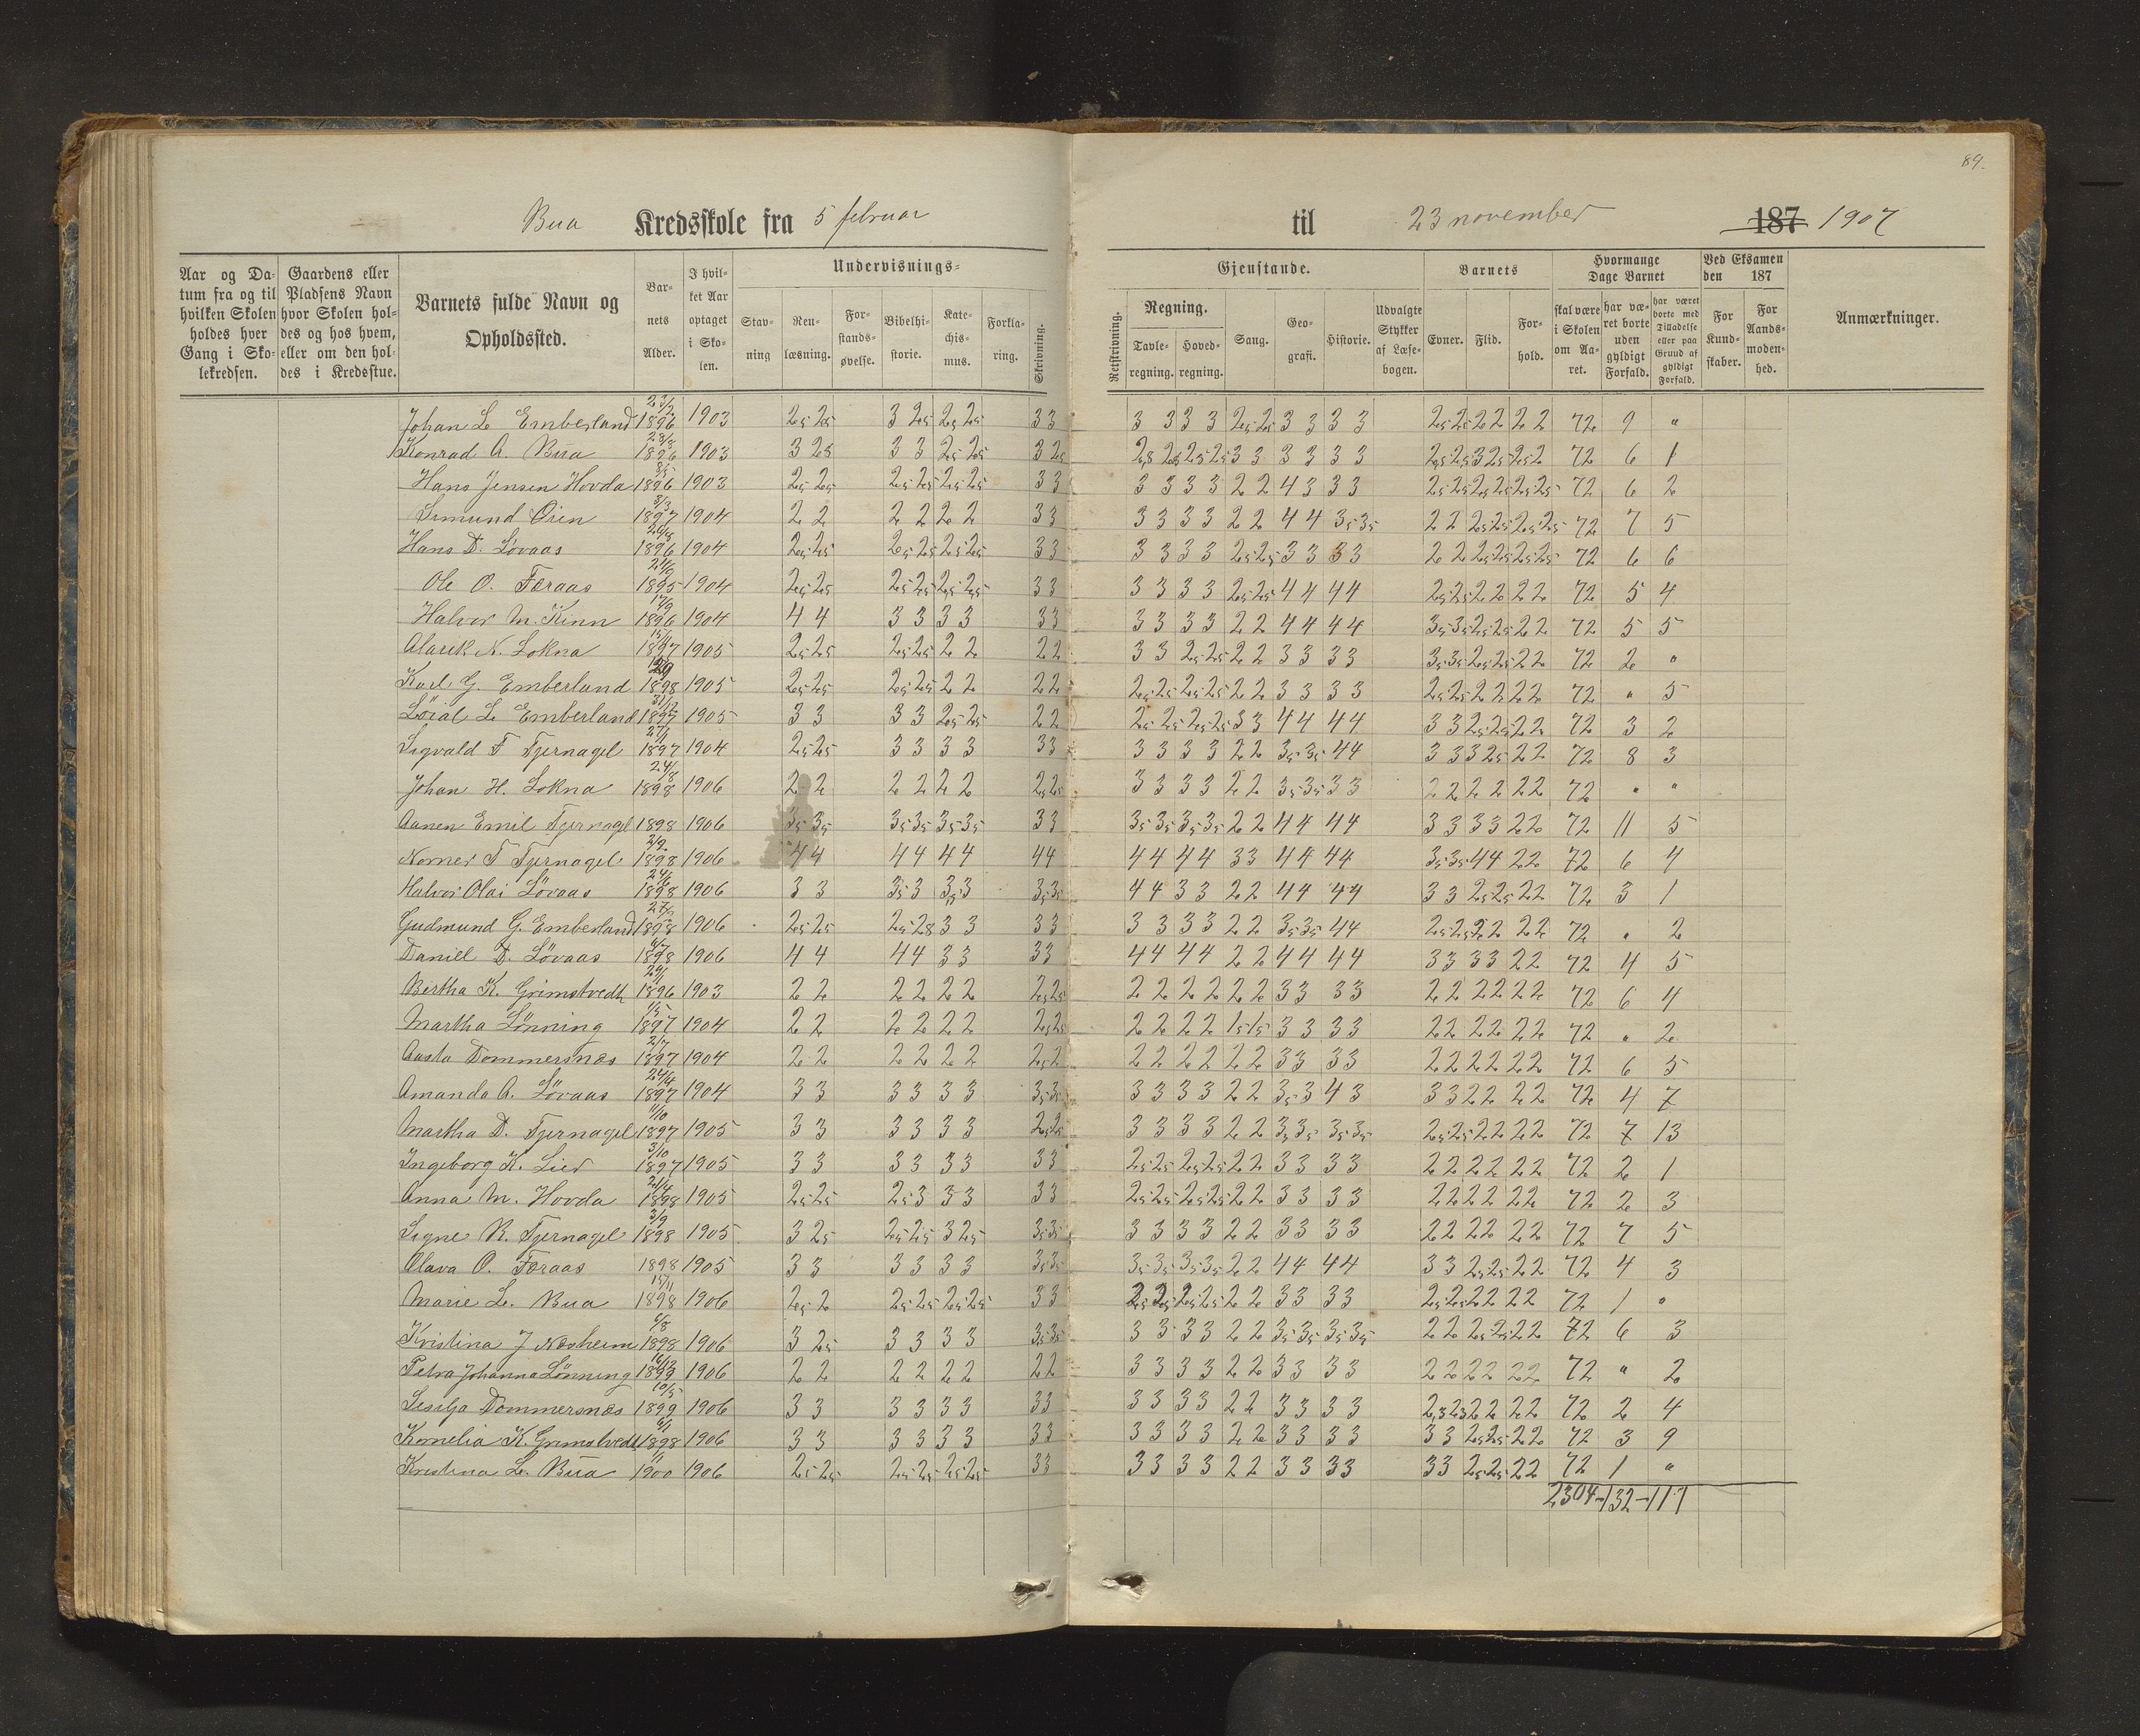 89.
Bua Kredsskole fra 5 februar til 23 november 187 1907
Aar og Datum fra og til hvilken Skolen holdes hver Gang i Skolekredsen.
Gaardens eller Pladsens Navn hvor Skolen holdes og hos hvem, eller om den holdes i Kredsstue.
Barnets fulde Navn og Opholdssted.
Barnets Alder.
I hvilket Aar optaget i Skolen.
Undervisnings-
Stavning
Renlæsning.
Forstandsøvelse.
Bibelhistorie.
Katechismus.
Forklaring.
Skrivning.
Gjenstande.
Retskrivning.
Regning.
Tavleregning.
Hovedregning.
Sang.
Geografi.
Historie.
Udvalgte Stykker af Læsebogen.
Barnets
Evner.
Flid.
Forhold.
Hvormange Dage Barnet
skal være i Skolen om Aaret.
har været borte uden gyldigt Forfald.
har været borte med Tilladelse eller paa Grund af gyldigt Forfald.
Ved Eksamen den 187
For Kundskaber.
For Aandsmodenhed.
Anmærkninger.
Johan L Emberland 23/2 1896 1903 25 25 3 25 25 25 33 3 3 3 3 25 25 3 3 3 3 25 25 22 22 72 9 "
Konrad A. Bua 23/8 1896 1903 3 25 3 3 25 25 3 25 25 25 25 25 33 3 3 3 3 25 25 3 25 25 2 72 6 1
Hans Jensen Hovda 8/5 1896 1903 25 25 25 25 25 25 33 3 3 3 3 2 2 4 3 3 3 25 25 25 25 25 25 72 6 2
Simund Öien 8/3 1897 1904 2 2 2 2 2 2 33 3 3 3 3 2 2 4 4 35 35 2 2 25 25 25 25 72 7 5
Hans D. Lövaas 1896 1904 25 25 25 25 25 25 33 3 3 3 3 25 25 3 3 3 3 2 2 25 25 25 25 72 6 6
Ole O. Færaas 1895 1904 25 25 25 25 25 25 33 3 3 3 3 25 25 4 4 4 4 25 25 2 2 2 2 72 5 4
Halvor M. Kinn 17/9 1896 1904 4 4 3 3 3 3 33 3 3 3 3 2 2 4 4 4 4 35 35 25 25 2 2 72 5 5
Alarik N. Lokna 1897 1905 25 25 25 25 2 2 22 3 3 25 25 2 2 3 3 3 3 35 35 25 25 2 2 72 2 "
Karl G. Emberland 1898 1905 25 25 25 25 2 2 22 25 25 25 25 2 2 3 3 3 3 25 25 2 2 2 2 72 " 5
Loial L Emberland 31/12 1897 1905 3 3 3 3 25 25 22 25 25 25 25 3 3 4 4 4 4 3 3 25 25 2 2 72 3 2
Sigvald F Tjernagel 27/1 1897 1904 25 25 3 3 3 3 33 3 3 3 3 2 2 35 35 4 4 3 3 3 25 2 2 72 8 3
Johan H. Lokna 24/8 1898 1906 2 2 2 2 2 2 25 25 3 3 3 3 2 2 35 35 3 3 2 2 2 2 2 2 72 " "
Aanen Emil Tjernagel 1898 1906 35 35 35 35 35 35 33 35 35 35 35 2 2 4 4 4 4 3 3 3 3 2 2 72 11 5
Norner T Tjernagel 2/9 1898 1906 4 4 4 4 4 4 44 4 4 4 4 3 3 4 4 4 4 35 35 4 4 2 2 72 6 4
Halvor Olai Lövaas 24/6 1898 1906 3 3 35 3 35 3 35 35 4 4 3 3 2 2 4 4 4 4 3 3 25 25 2 2 72 3 1
Gudmund G. Emberland 1898 1906 25 25 25 28 3 3 33 3 3 3 3 2 2 35 35 4 4 25 25 2 2 2 2 72 " 2
Daniel D. Lövaas 1898 1906 4 4 4 4 3 3 33 4 4 4 4 2 2 4 4 4 4 3 3 3 3 2 2 72 4 5
Bertha K. Grimstvedt 29/1 1896 1903 2 2 2 2 2 2 25 25 2 2 2 2 2 2 3 3 3 3 2 2 2 2 2 2 72 6 4
Martha Lönning 1/5 1897 1904 2 2 2 2 2 2 25 25 2 2 2 2 15 15 3 3 3 3 2 2 2 2 2 2 72 " 2
Aasta Dommersnæs 2/7 1897 1904 2 2 2 2 2 2 25 2 2 2 2 2 2 2 3 3 3 3 2 2 2 2 2 2 72 6 5
Amanda A. Lövaas 24/4 1897 1904 3 3 3 3 3 3 35 35 3 3 3 3 2 2 35 3 4 3 3 3 2 2 2 2 72 4 7
Martha D. Tjernagel 11/10 1897 1905 3 3 3 3 3 3 25 25 3 3 3 3 2 2 35 35 35 35 25 25 2 2 2 2 72 7 13
Ingeborg K. Lier 3/10 1897 1905 3 3 3 3 3 3 33 25 25 25 25 2 2 3 3 3 3 2 2 2 2 2 2 72 2 1
Anna M. Hovda 21/4 1898 1905 25 25 25 3 3 3 33 25 25 25 25 2 2 3 3 3 3 2 2 2 2 2 2 72 2 3
Signe R. Tjernagel 3/9 1898 1905 3 25 25 25 3 25 35 35 3 3 3 3 2 2 3 3 3 3 2 2 2 2 2 2 72 7 5
Olava O. Færaas 1898 1905 3 3 3 3 3 3 35 35 35 35 35 35 2 2 4 4 4 4 3 3 25 25 2 2 72 4 3
Marie L. Bua 15/11 1898 1906 25 2 25 25 25 25 33 25 25 25 25 2 2 3 3 3 3 25 25 2 2 2 2 72 1 "
Kristina J Næsheim 6/8 1898 1906 3 25 3 3 3 3 35 35 3 3 3 3 2 2 35 35 35 35 2 2 25 25 2 2 72 6 3
Petra Johanna Lönning 1899 1906 2 2 2 2 2 2 22 3 3 3 3 2 2 3 3 3 3 2 2 2 2 2 2 72 " 2
Sesilja Dommersnæs 10/5 1899 1906 3 3 3 3 3 3 33 3 3 3 3 2 2 3 3 3 3 23 23 2 2 2 2 72 2 4
Kornelia K. Grimstvedt 6/1 1898 1906 3 3 3 3 3 3 33 3 3 3 3 2 2 3 3 3 3 3 3 25 25 2 2 72 3 9
Kristina L. Bua 1900 1906 25 25 25 25 25 25 33 3 3 3 3 2 2 3 3 3 3 3 3 25 25 2 2 72 1 "
2304-132-117